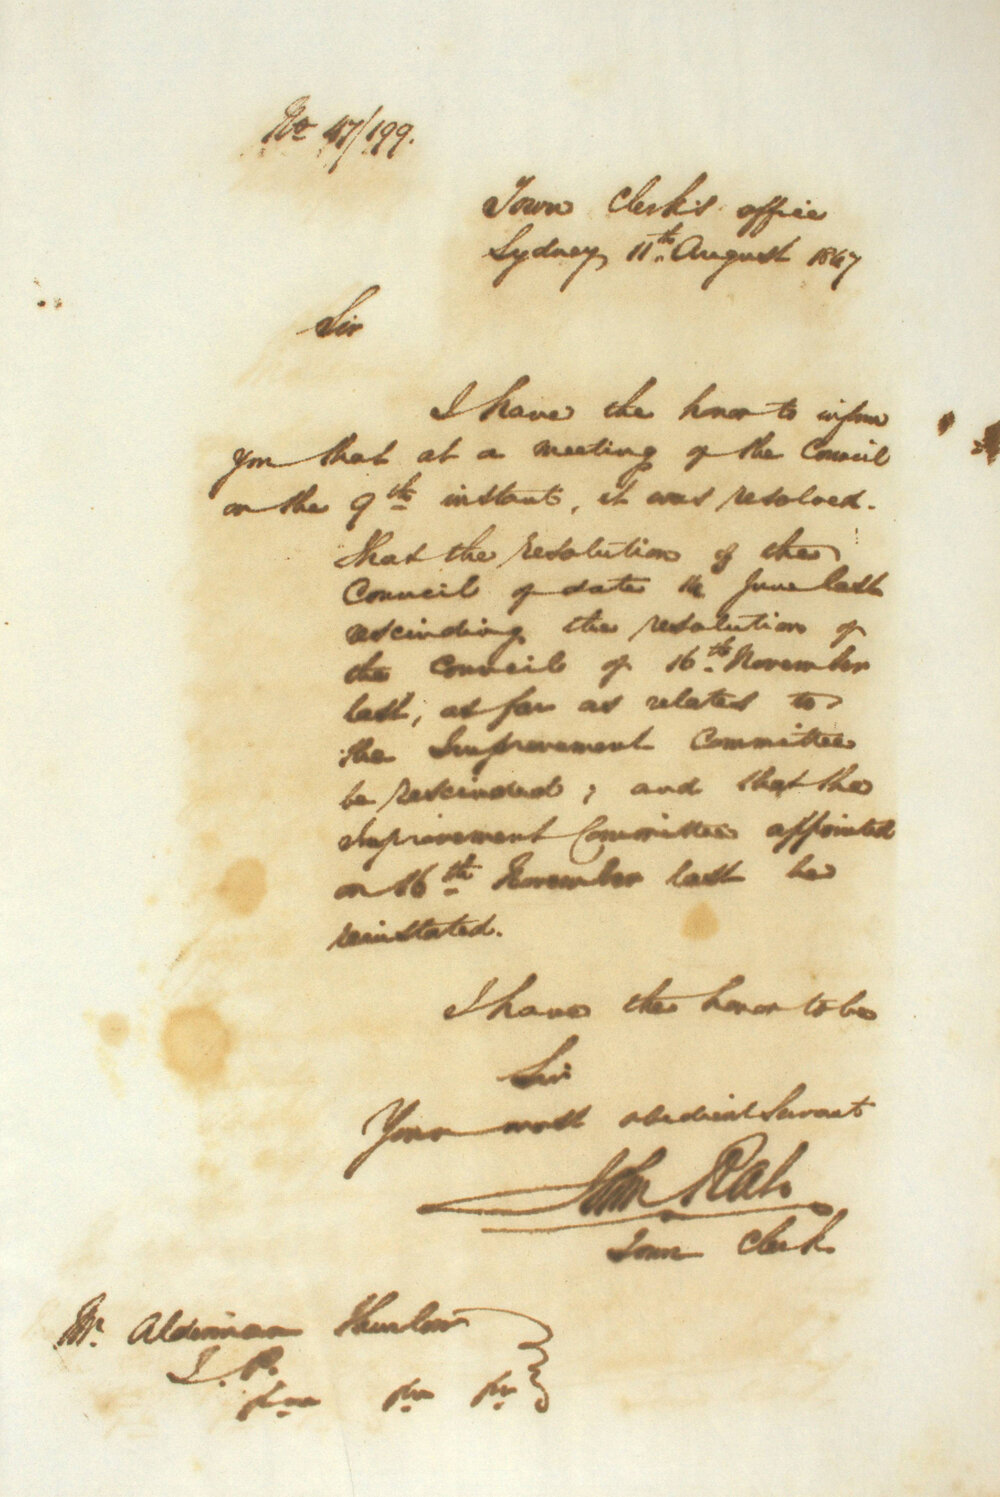 No 47/199.
Town Clerk's office
Sydney 11th August 1847
Sir
I have the honor to inform
you that at a meeting of the Council
on the 9th instant, it was resolved.
that the resolution of the
Council of date 14 June last
rescinding the resolution of
the Council of 16th November
last, as far as relates to
the Improvement Committee
be rescinded; and that the
Improvement Committee appointed
on 16th November last be
reinstated.
I have the honor to be
Sir
Your most obedient Servant
John Rae
Town Clerk
Mr. Alderman Thurlow